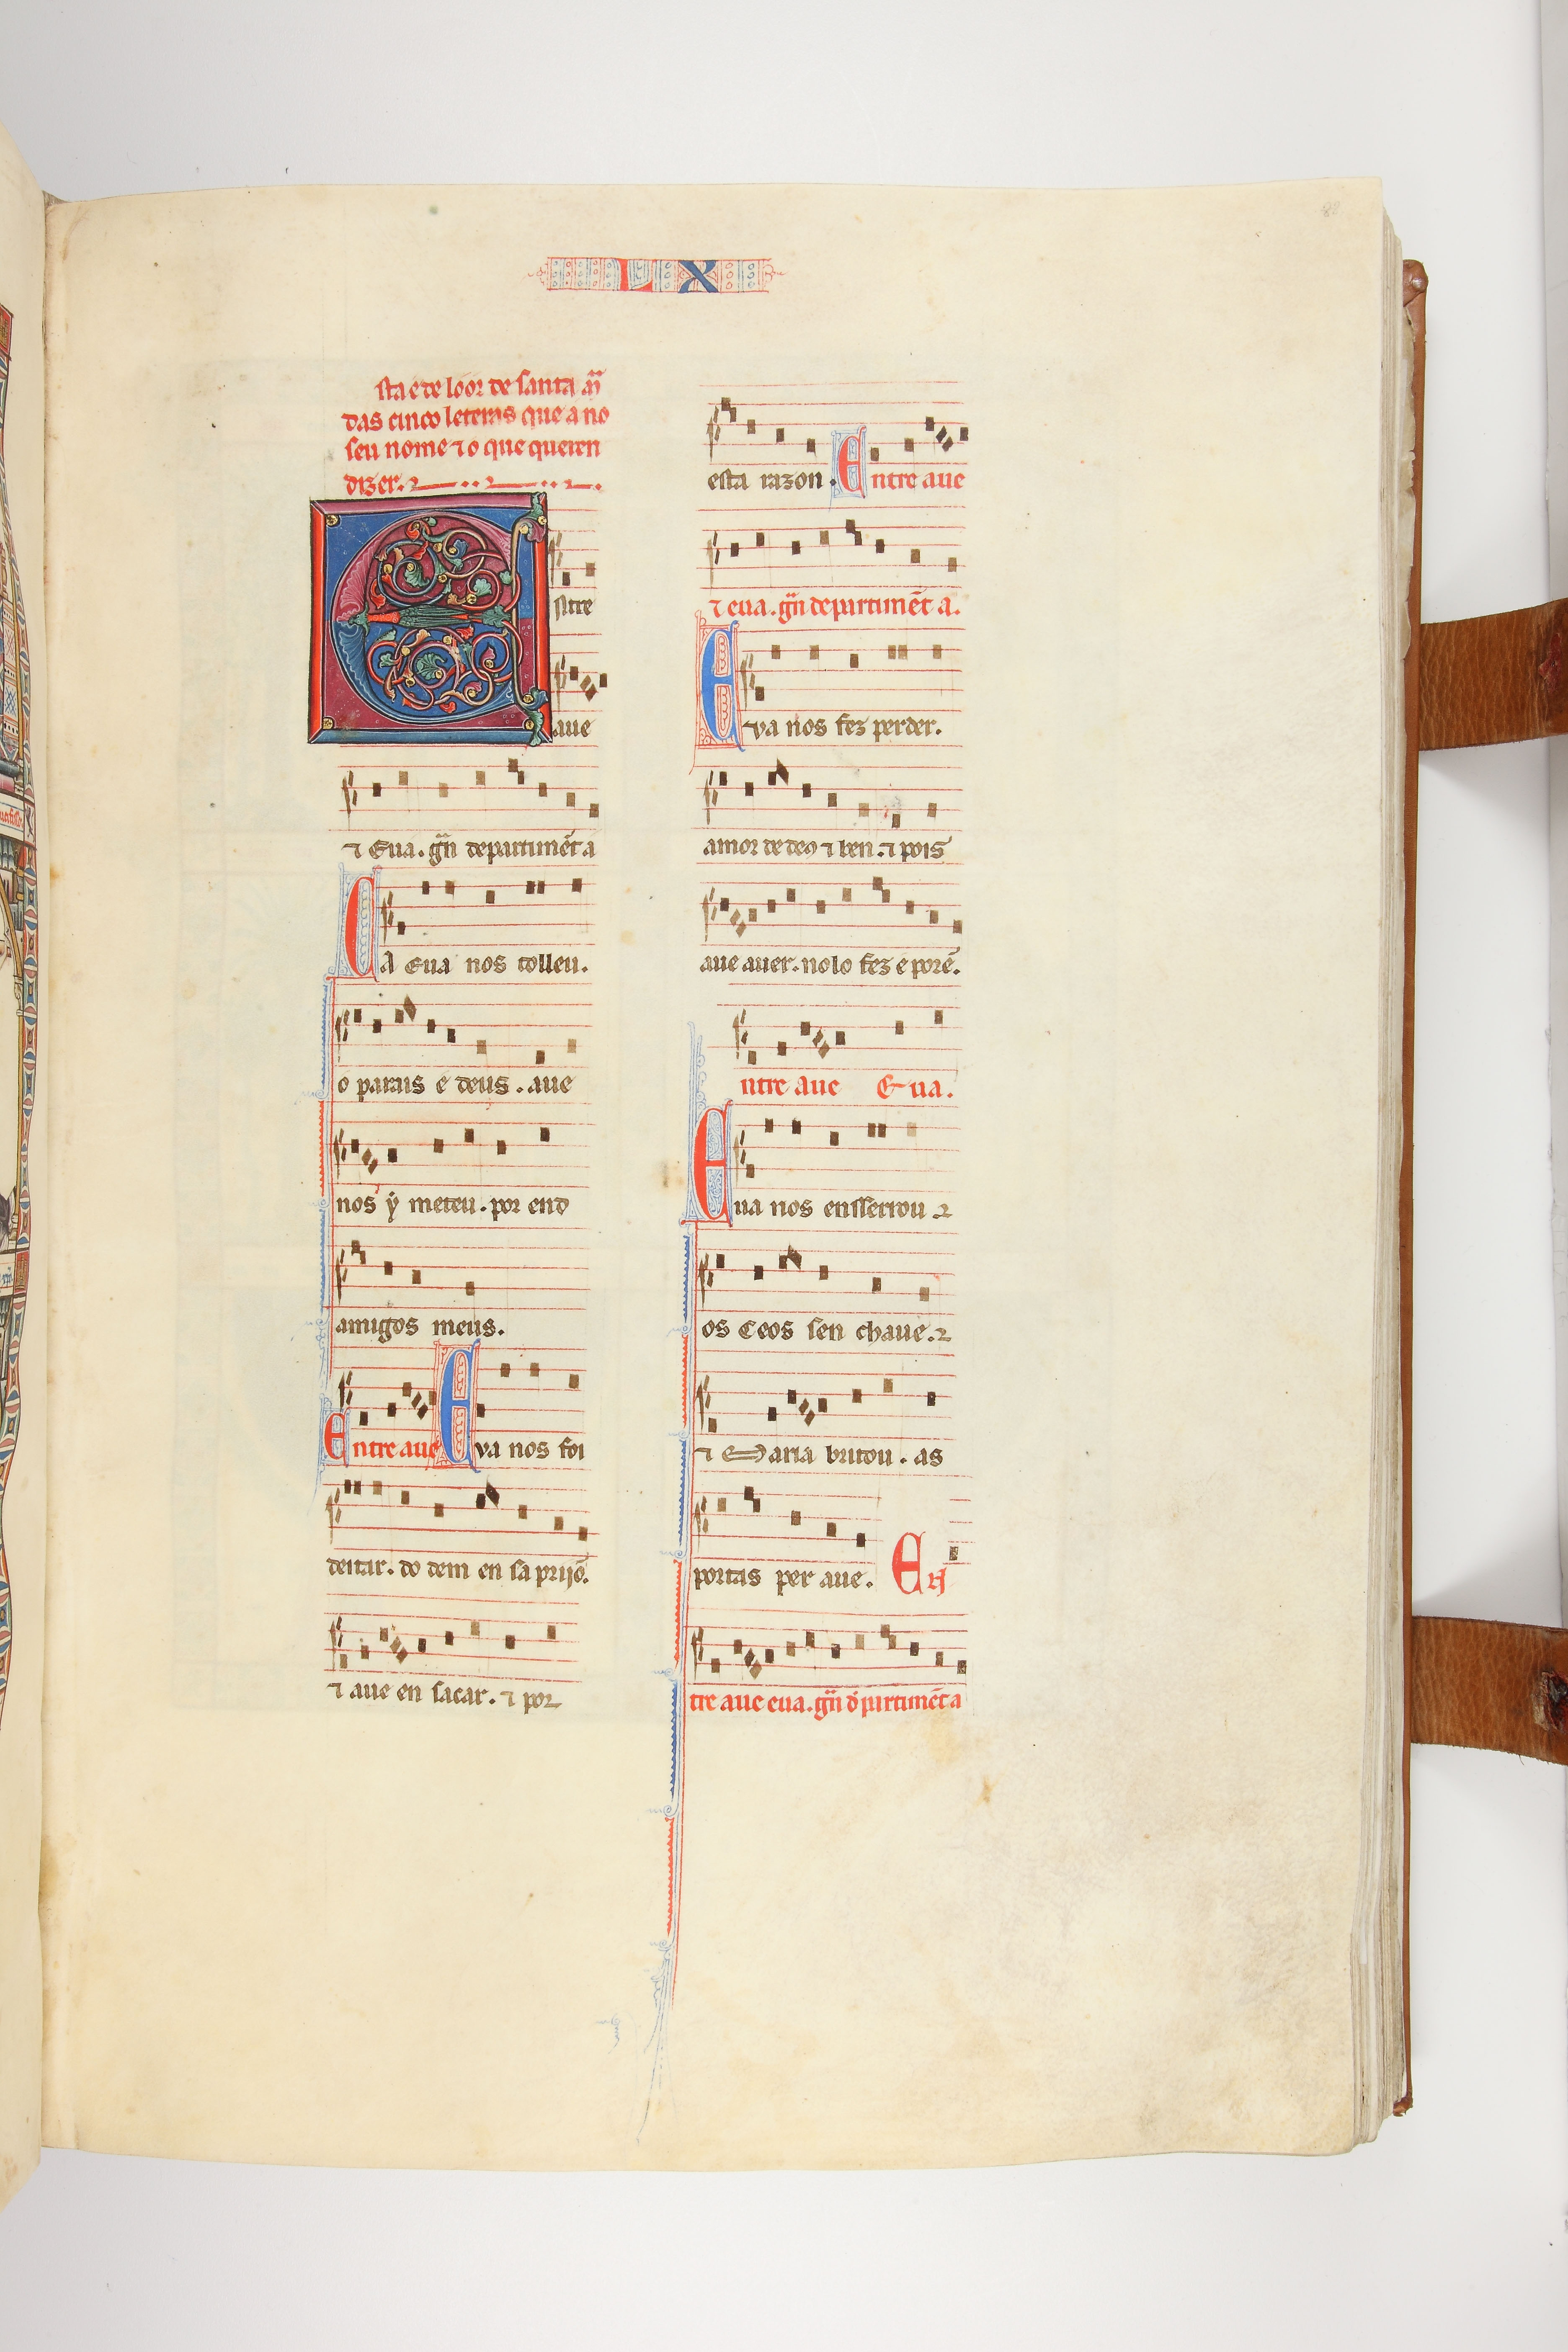 LX
sta e de loor de santa mā
das cinco leteras que a no
seu nome ⁊ o que queren
dizer.
E ntre
aue
⁊ Eua. gͣn departimēt a
CA Eua nos tolleu.
o parais e deus. aue
nos y̓ meteu. por end
amigos meus.
Entre aue Eva nos foi
deitar. do dem en sa prijō.
⁊ aue en sacar. ⁊ por
esta razon. Entre aue
⁊ eua. gͣn departimēt a.
Eva nos fez perder.
amor de deꝯ ⁊ ben. ⁊ pois
aue auer. nolo fez e porē.
ntre aue Eua.
Eua nos ensserrou
os ceos sen chaue.
⁊ Maria britou. as
portas per aue. En
tre aue eua. gͣn d̓partimēt a